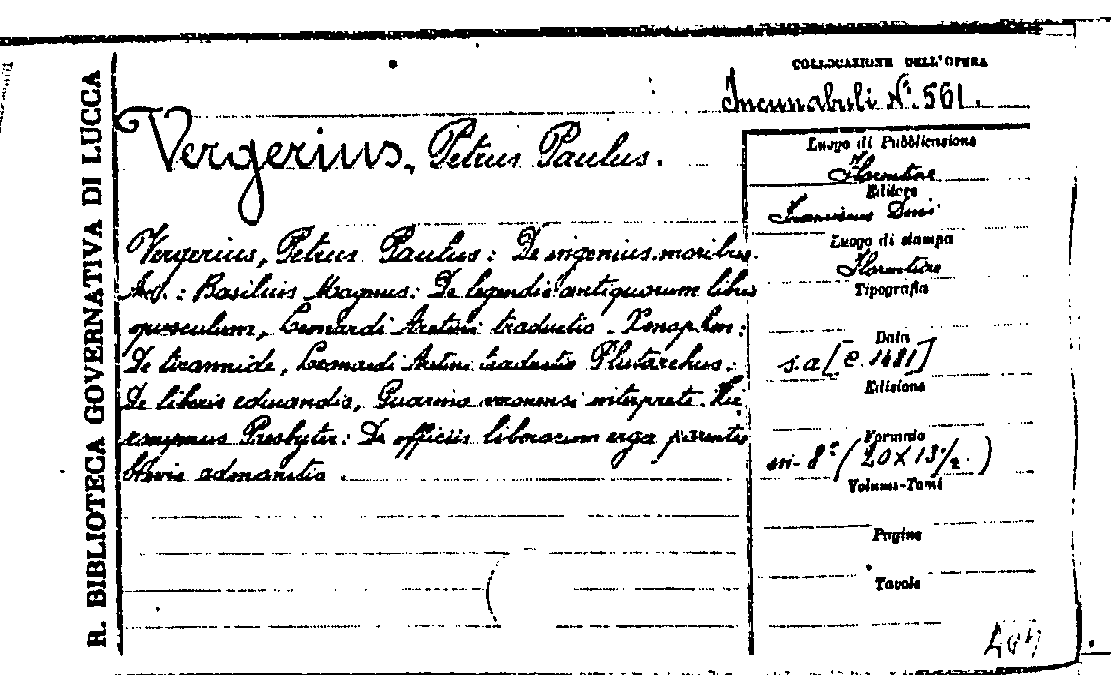 R. BIBLIOTECA GOVERNATIVA DI LUCCA
COLLOCAZIONE DELL'OPERA
Incunabuli N.º 561.
Vergerius, Petrus Paulus.
Vergerius, Petrus Paulus: De ingenius moribus.
Acc.: Basilius Magnus: De legendis antiquorum libris
opusculum, Leonardi Aretini traductio. Xenophon:
De tirannide, Leonardi Aretini traductio Plutarchus:
De liberis educandis, Guarino veronensi interprete. Hie
ronymus Presbyter: De officiis liberorum erga parentes
brevis admonitio.
Luogo di Pubblicazione
Florentiae
Editore
Franciscus Dini
Luogo di stampa
Florentiae
Tipografia
Data
s.a [c. 1481]
Edizione
Formato
in-8º (20 X 13 1/2.)
Volumi-Tomi
Pagine
Tavole